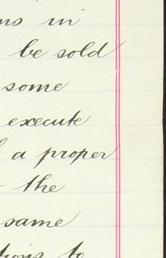 ns in
be sold
some
execute
a proper
the
same
tions to